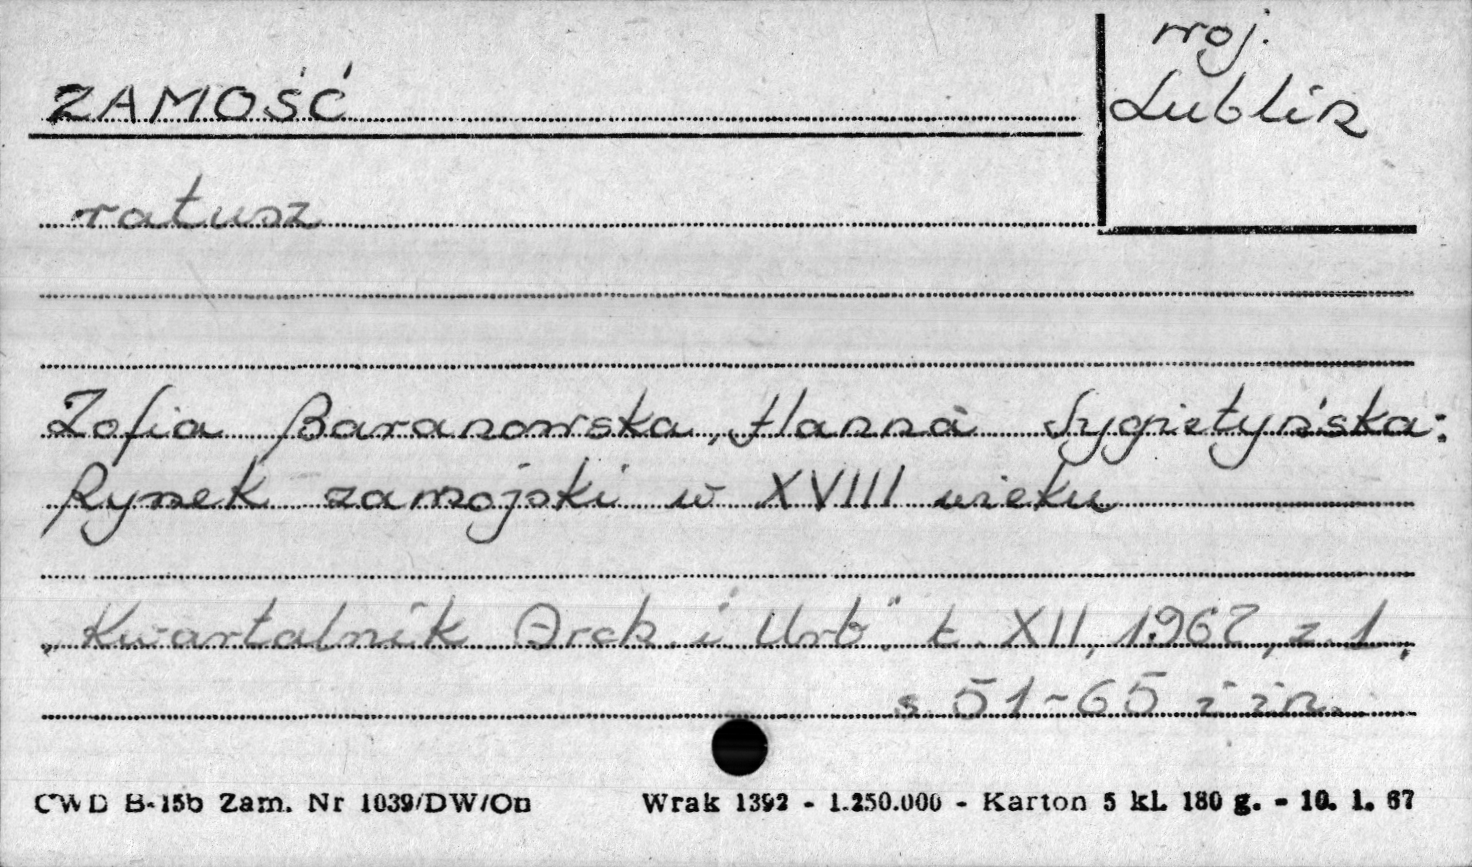 woj.
Lublin
ZAMOŚĆ
ratusz
Zofia Baranowska, Hanna Sygietyńska:
Rynek zamojski w XVIII wieku
„Kwartalnik Arch. i Urb." t. XII, 1967, z. 1,
s. 51-65 i in.
CWD B-15b Zam. Nr 1039/DW/On Wrak 1392 - 1.250.000 - Karton 5 kl. 180 g. - 10. 1. 67